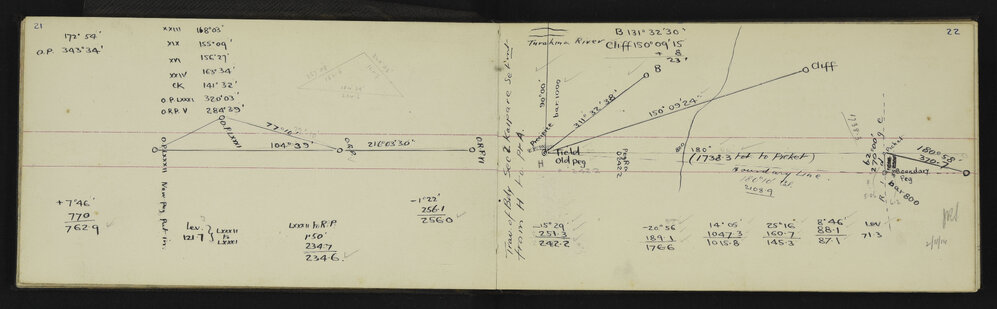 21
172° 54'
O.P. 343° 34'
XXIII 168° 03'
XIX 155° 09'
XVI 156° 27'
XXIV 163° 34'
CK 141° 32'
O.P. LXXXI 320° 03'
O.R.P. V 284° 39'
O.P. LXXXI
77° 16'
104° 39'
O.R.P.
216° 03' 30"
O.R.P. VI
O.P. LXXXII New peg put in.
+ 7° 46'
770
762.9
Lev. 1217 } LXXXII to LXXXI
LXXXII to R.P
1° 50'
234.7
234.6
- 1° 22'
256.1
256.0
22
Trav of Bdy Sec 2 Kaipare Set
from H to pt A.
Turahma River
B 131° 32' 30"
Cliff 150° 09' 15"
+ 8
23"
B
Cliff
90° 00'
bar 1000
311° 32' 38"
150° 09' 24"
H
Field
Old peg
180°
(1738.3 Fot to Picket)
Boundary Line
180° 10'
2108.9
1738.3
270° 00'
Picket
180° 58'
370.7
Boundary
Peg
bar 800
- 15° 29'
251.3
242.2
- 20° 56
189.1
176.6
14° 05'
1047.3
1015.8
25° 16'
160.7
145.3
8° 46'
88.1
87.1
Lev
71.3